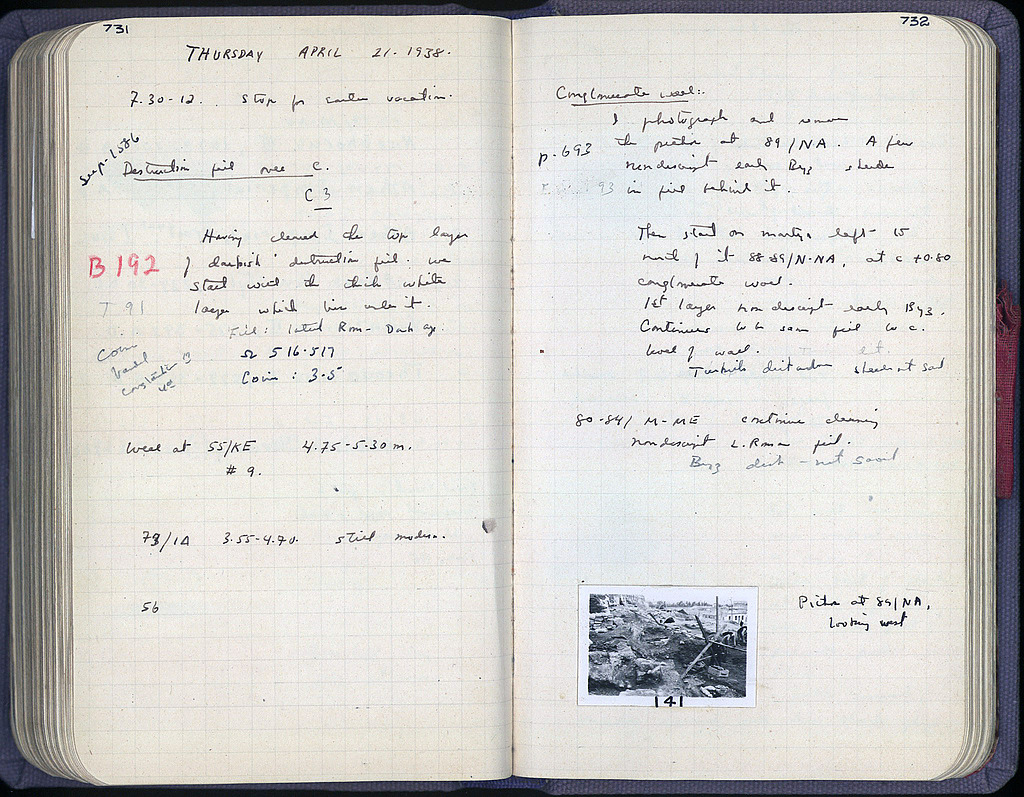 731
THURSDAY APRIL 21. 1938.
7.30-12. Stop for easter vacation.
See p. 1586
Destruction fill over C.
C 3
Having cleared the top layer
B 192
of darkish destruction fill. we
start with the thick white
T 91
layer which lies under it.
Fill: lated Rom - Dark age.
Ω 516-517
Coins: 3-5
Coin
Constantine
Well at 55/KE 4.75-5.30 m.
# 9.
73/1A 3.55-4.70. still modern.
56
732
Conglomerate wall:
I photograph and remove
p. 693
the pithos at 89/NA. A few
nondescript early Byz sherds
in fill behind it.
Then start on left
north of it 88-89/N-NA, at c +0.80
conglomerate wall.
1st layer nondescript early Byz.
Continues same fill
level of wall.
Turkish disturbance
80-84/ M-ME continue cleaning
nondescript L. Roman fill.
Byz dist - not saved
Pithos at 89/NA,
looking west
141